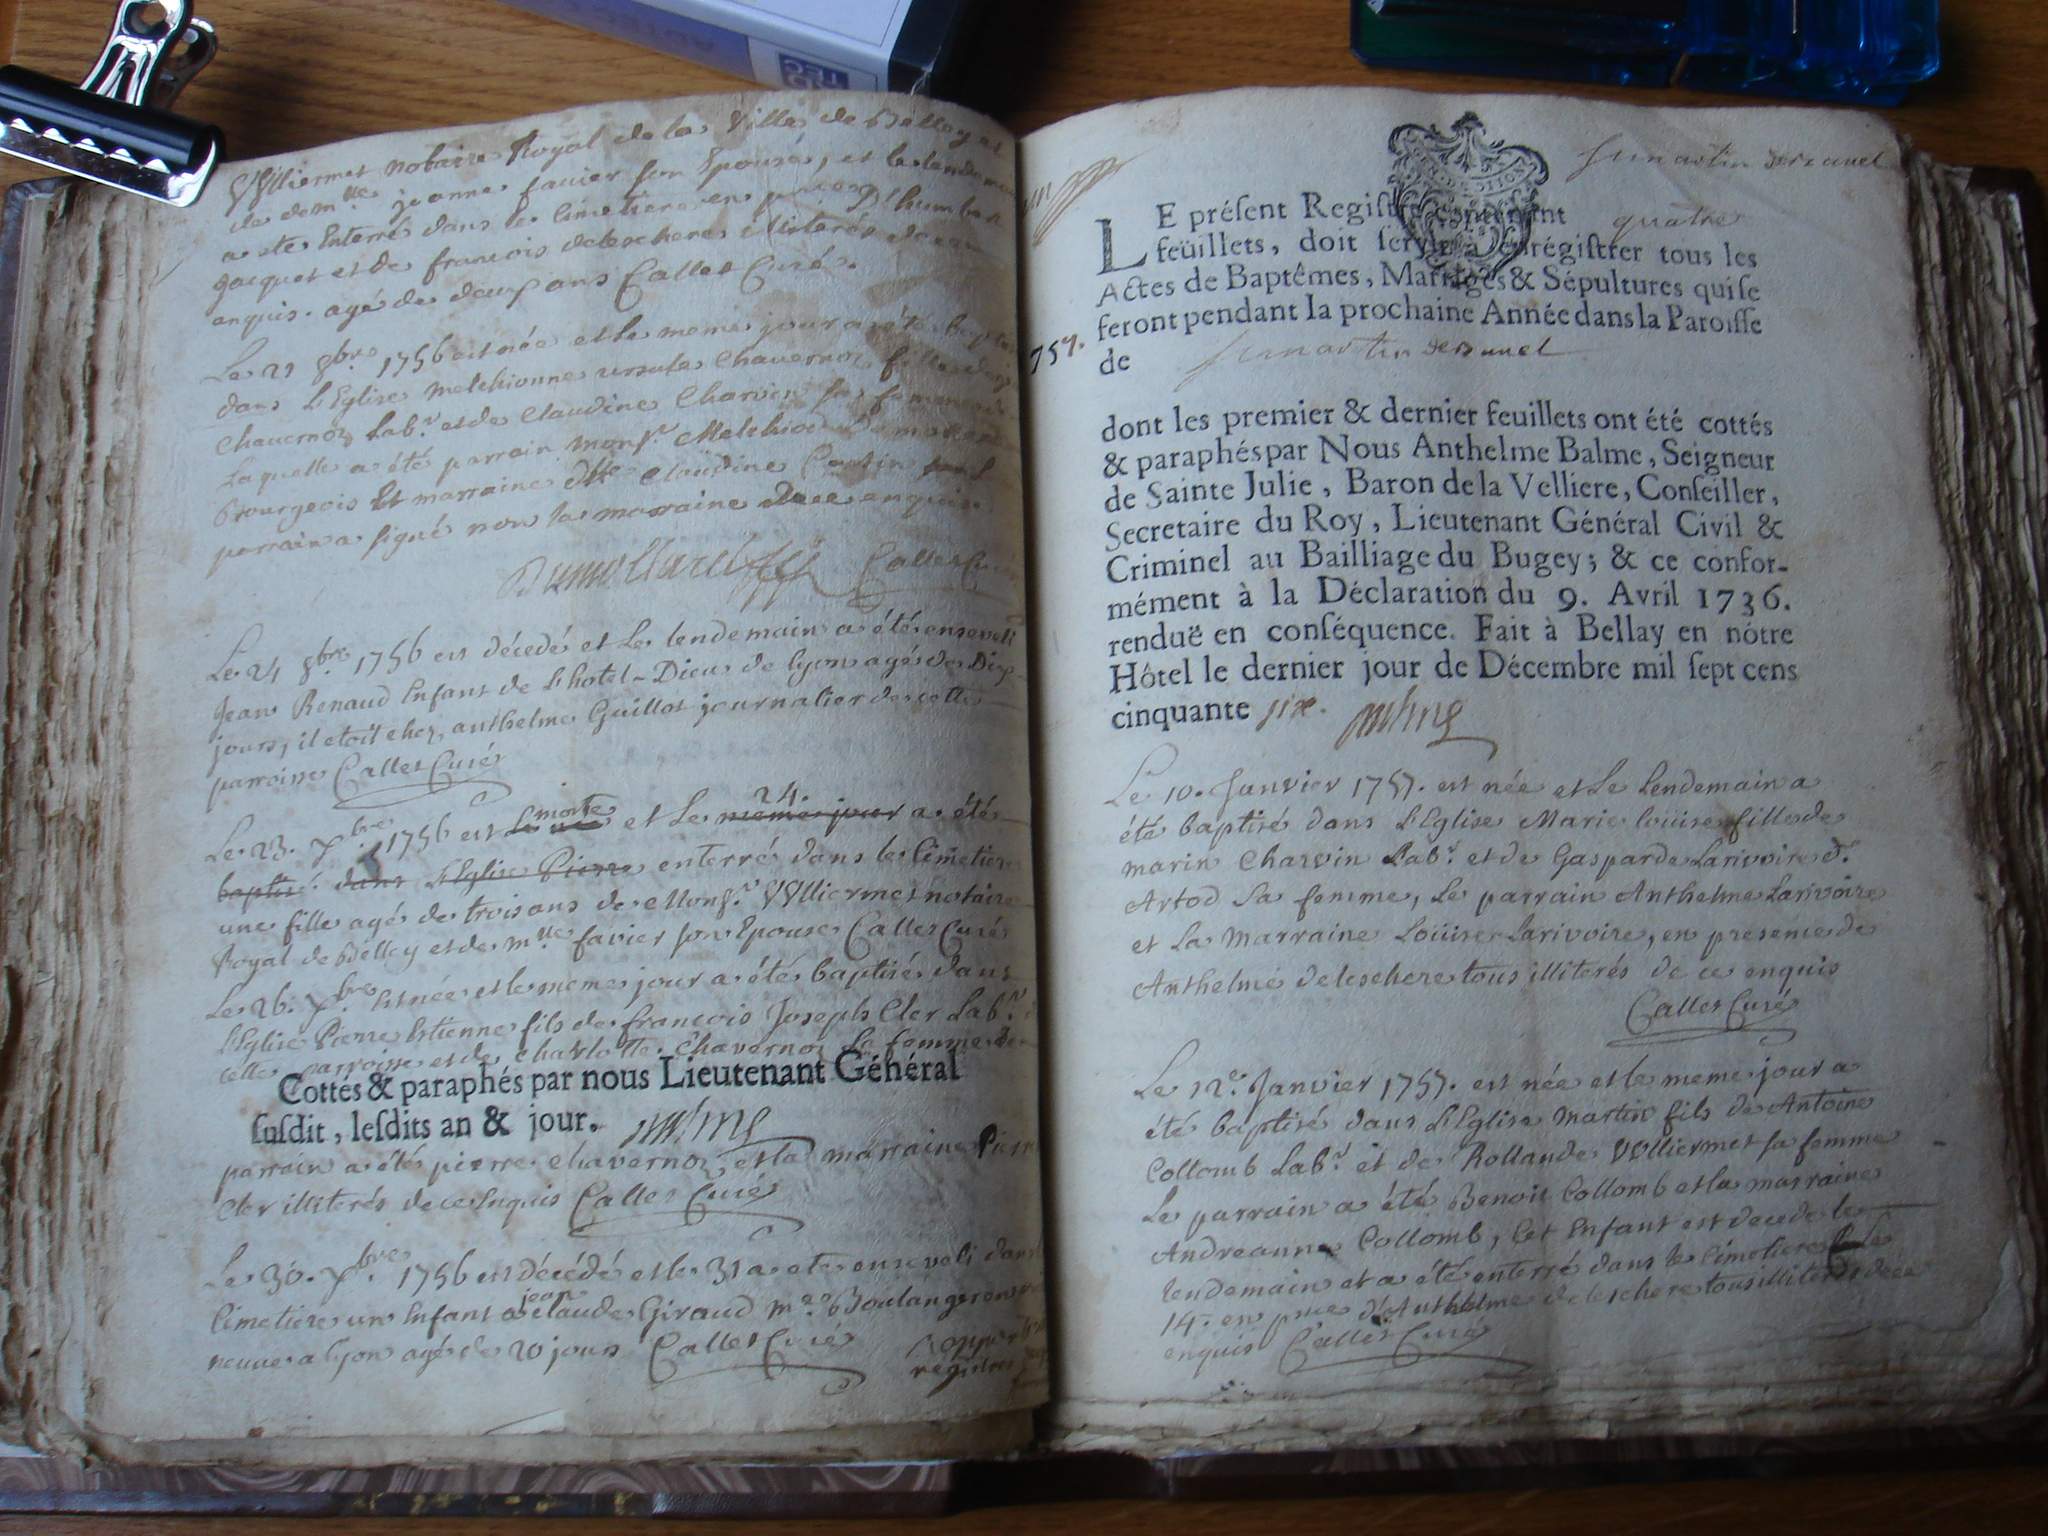 notaire Royal de la Ville de Belley et
de dem.lle jeanne favier son Epouse, et le lendemain
a ete Enterré dans le Cimetiere en
jacquet et de françois deleschere illiterés de ce
enquis. agé de deux ans Callet Curé.
Le 21 8bre 1756 est née et le meme jour a été
dans l'Eglise Melchionne ursule Chavernoz fille
Chavernoz Lab.r et de Claudine Charvin sa femme
Laquelle a été parrain Mons.r Melchior
Bourgeois Et marraine dlle Claudine
parrain a signé non la marraine de ce enquise.
Dumollard Callet Curé
Le 24 8bre 1756 est décédé et Le lendemain a été enseveli
Jean Renaud Enfant de L'hotel-Dieu de lyon agé de Dix
jours, il etoit chez anthelme Guillot journalier de cette
parroisse Callet Curé
Le 23. xbre 1756 est morte et Le 24. meme jour a été
baptisé dans L'Eglise Pierre enterré dans le Cimetiere
une fille agé de trois ans de Mons.r Vulliermet notaire
Royal de Belley et de m.lle favier son Epouse Callet Curé
Le 26. xbre Est née et le meme jour a été baptisé dans
L'Eglise Pierre Etienne fils de françois Joseph Cler Lab.r
cette parroisse et de Charlotte Chavernoz sa femme
Cottés & paraphés par nous Lieutenant Général
susdit, lesdits an & jour.
parrain a été pierre Chavernoz et la marraine Pierr
Cler illiterés de ce Enquis Callet Curé
Le 30. xbre 1756 est décédé et le 31 a eté enseveli dans
Cimetiere un Enfant a jean claude Giraud m.e Boulanger
neuve a lyon agé de 20 jours Callet Curé
St martin de
LE présent Registre contenant quatre
feüillets, doit servir à enrégistrer tous les
Actes de Baptêmes, Mariages & Sépultures qui se
feront pendant la prochaine Année dans la Paroisse
757.
de St martin de
dont les premier & dernier feuillets ont été cottés
& paraphés par Nous Anthelme Balme, Seigneur
de Sainte Julie, Baron de la Velliere, Conseiller,
Secretaire du Roy, Lieutenant Général Civil &
Criminel au Bailliage du Bugey; & ce confor-
mément à la Déclaration du 9. Avril 1736.
renduë en conséquence. Fait à Bellay en nôtre
Hôtel le dernier jour de Décembre mil sept cens
cinquante six.
Le 10. Janvier 1757. est née et Le Lendemain a
été baptisé dans L'Eglise Marie loüise fille de
marin Charvin Lab.r et de Gasparde Larivoire d.t
Artod sa femme, Le parrain Anthelme Larivoire
et La Marraine Loüise Larivoire, en presence de
Anthelme deleschere tous illiterés de ce enquis
Callet Curé
Le 12e Janvier 1757. est née et le meme jour a
été baptisé dans L'Eglise Martin fils de Antoine
Collomb Lab.r et de Rollande Vulliermet sa femme
Le parrain a été Benoit Collomb et la marraine
Andreanne Collomb, Cet Enfant est decede le
lendemain et a été enterré dans le Cimetiere Le
14. en pnce d'Anthelme deleschere tous illiterés de ce
enquis Callet Curé